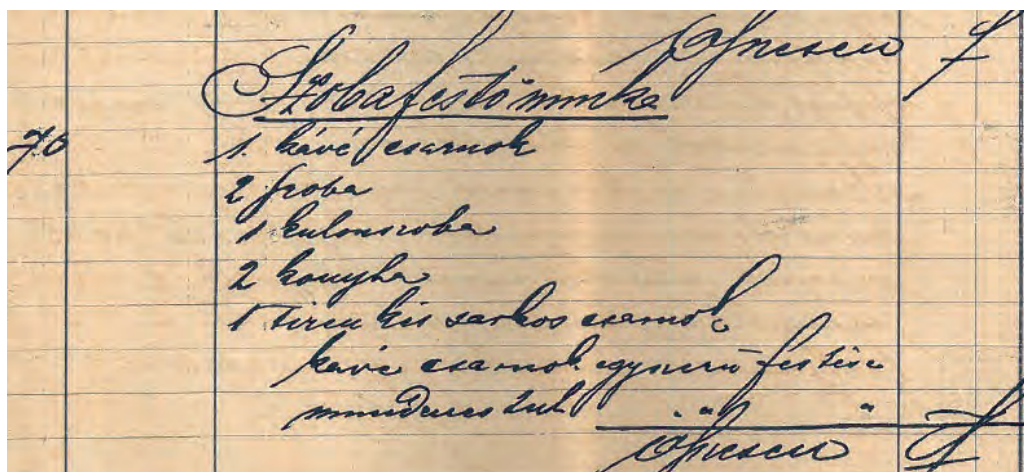 összesen f
Szobafestő munka
70 1 kávé csarnok
2 szoba
1 kulonszoba
2 konyha
1 kis sarkos csarnok
kávé csarnok egyszerű festése
mindenestul " "
összesen f